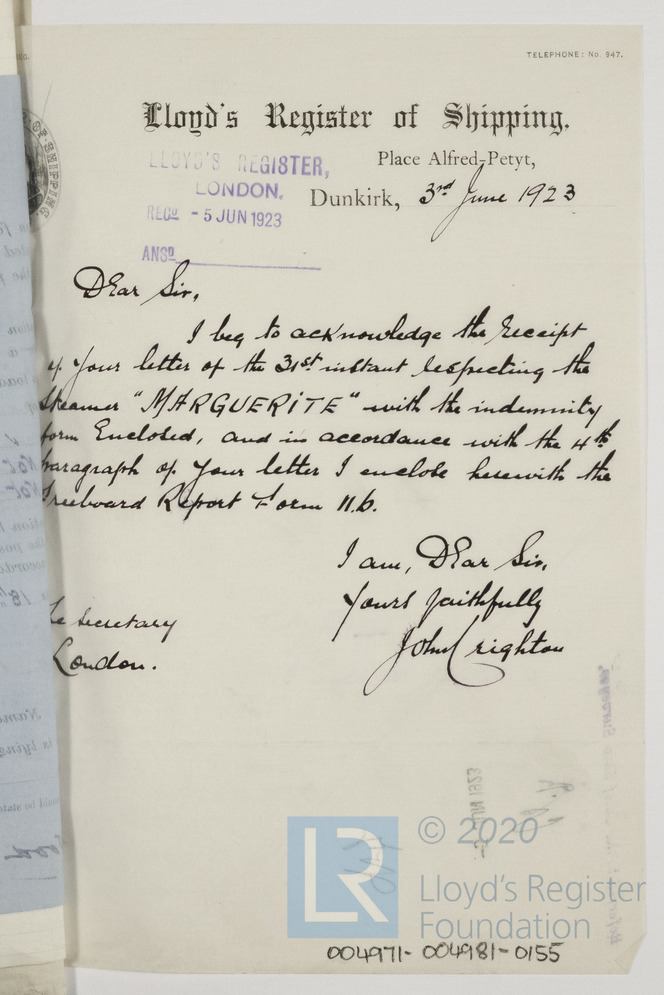 TELEPHONE: No. 947.
Lloyd's Register of Shipping.
Place Alfred-Petyt,
Dunkirk, 3rd June 1923
LLOYD'S REGISTER,
LONDON.
RECD - 5 JUN 1923
ANSD
Dear Sir,
I beg to acknowledge the receipt
of your letter of the 31st instant respecting the
steamer "MARGUERITE" with the indemnity
form Enclosed, and in accordance with the 4th
paragraph of your letter I enclose herewith the
Freeboard Report Form 11.b.
I am, Dear Sir,
Yours faithfully
John Crighton
Secretary
London.
JUN 1923
© 2020
LR
Lloyd's Register
Foundation
004971-004981-0155